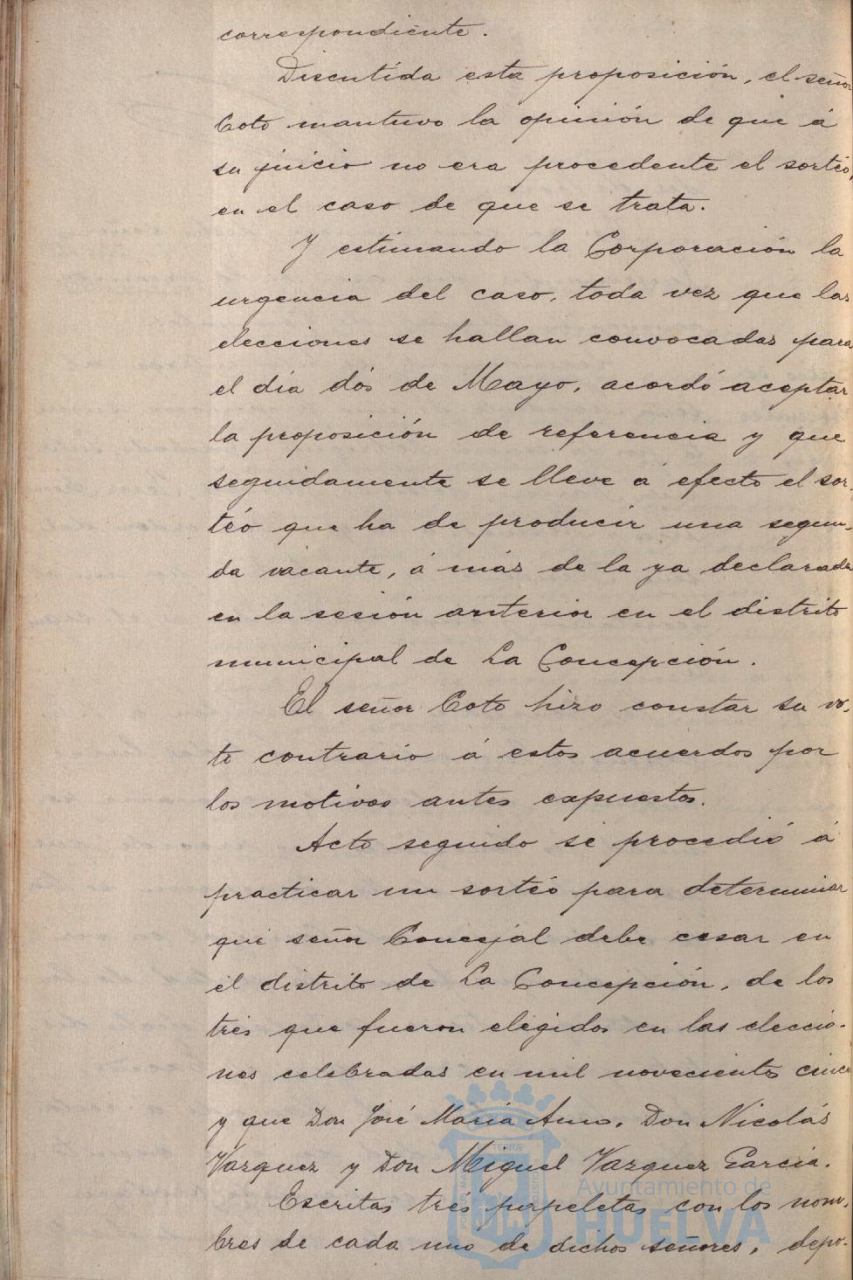 correspondiente.
Discutida esta proposición, el señor
Coto mantuvo la opinión de que á
su juicio no era procedente el sorteo,
en el caso de que se trata.
Y estimando la Corporación la
urgencia del caso, toda vez que las
elecciones se hallan convocadas para
el dia dós de Mayo, acordó aceptar
la proposición de referencia y que
seguidamente se lleve á efecto el sor-
téo que ha de producir una segun-
da vacante, á más de la ya declarada
en la sesión anterior en el distrito
municipal de La Concepción.
El señor Coto hizo constar su vo-
to contrario á estos acuerdos por
los motivos antes expuestos.
Acto seguido se procedió á
practicar un sortéo para determinar
qué señor Concejal debe cesar en
el distrito de La Concepción, de los
tres que fueron elegidos en las eleccio-
nes celebradas en mil novecientos cinco
y que Don José María Amo, Don Nicolás
Vazquez y Don Miguel Vazquez Garcia.
Escritas tres papeletas con los nom-
bres de cada uno de dichos señores, depo-
Ayuntamiento de
HUELVA